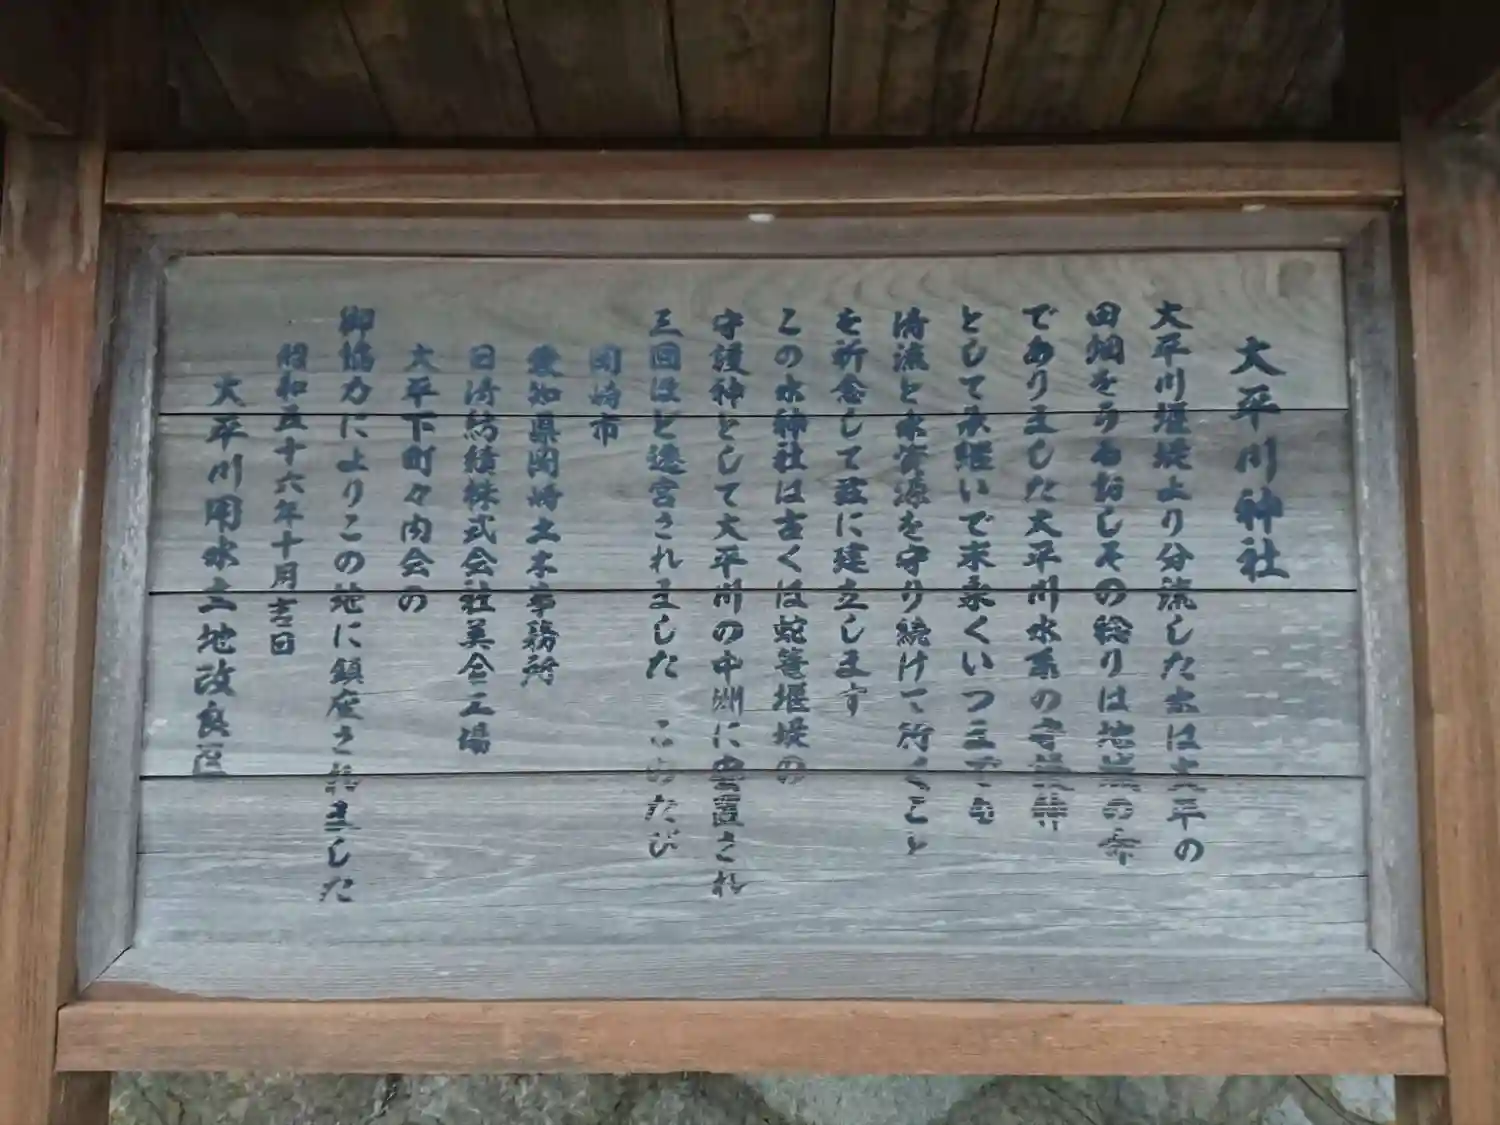 大平川神社
大平川堰堤より分流した水は大平の
田畑をうるおしその稔りは地域の命
でありました大平川水系の守護神
として承継いで末永くいつまでも
清流と水資源を守り続けて所くこと
を祈念して茲に建立します
この水神社は古くは蛇篭堰堤の
守護神として大平川の中州に安置され
三回ほど遷宮されました このたび
岡崎市
愛知県岡崎土木事務所
日清紡績株式会社美合工場
大平下町々内会の
御協力によりこの地に鎮座されました
昭和五十六年十月吉日
大平川用水土地改良区